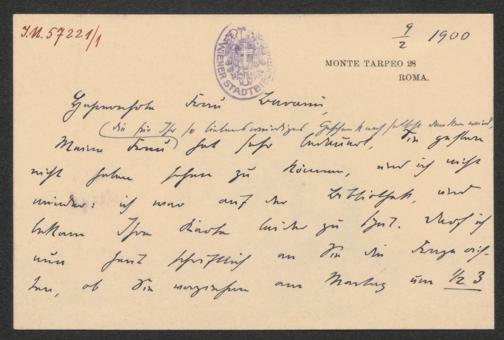 I.N. 57221/1
9/2 1900
WIENER STADTBIBLIOTHEK
MONTE TARPEO 28
ROMA.
Hochverehrte Frau Baronin,
(die für Ihr so liebenswürdiges Geschenk noch selbst danken wird)
Meine Frau hat sehr bedauert, Sie gestern
nicht haben sehen zu können, und ich nicht
minder: ich war auf der Bibliothek, und
bekam Ihre Karte leider zu spät. Darf ich
nun heut schriftlich an Sie die Frage rich-
ten, ob Sie vorziehen am Montag um ½ 3